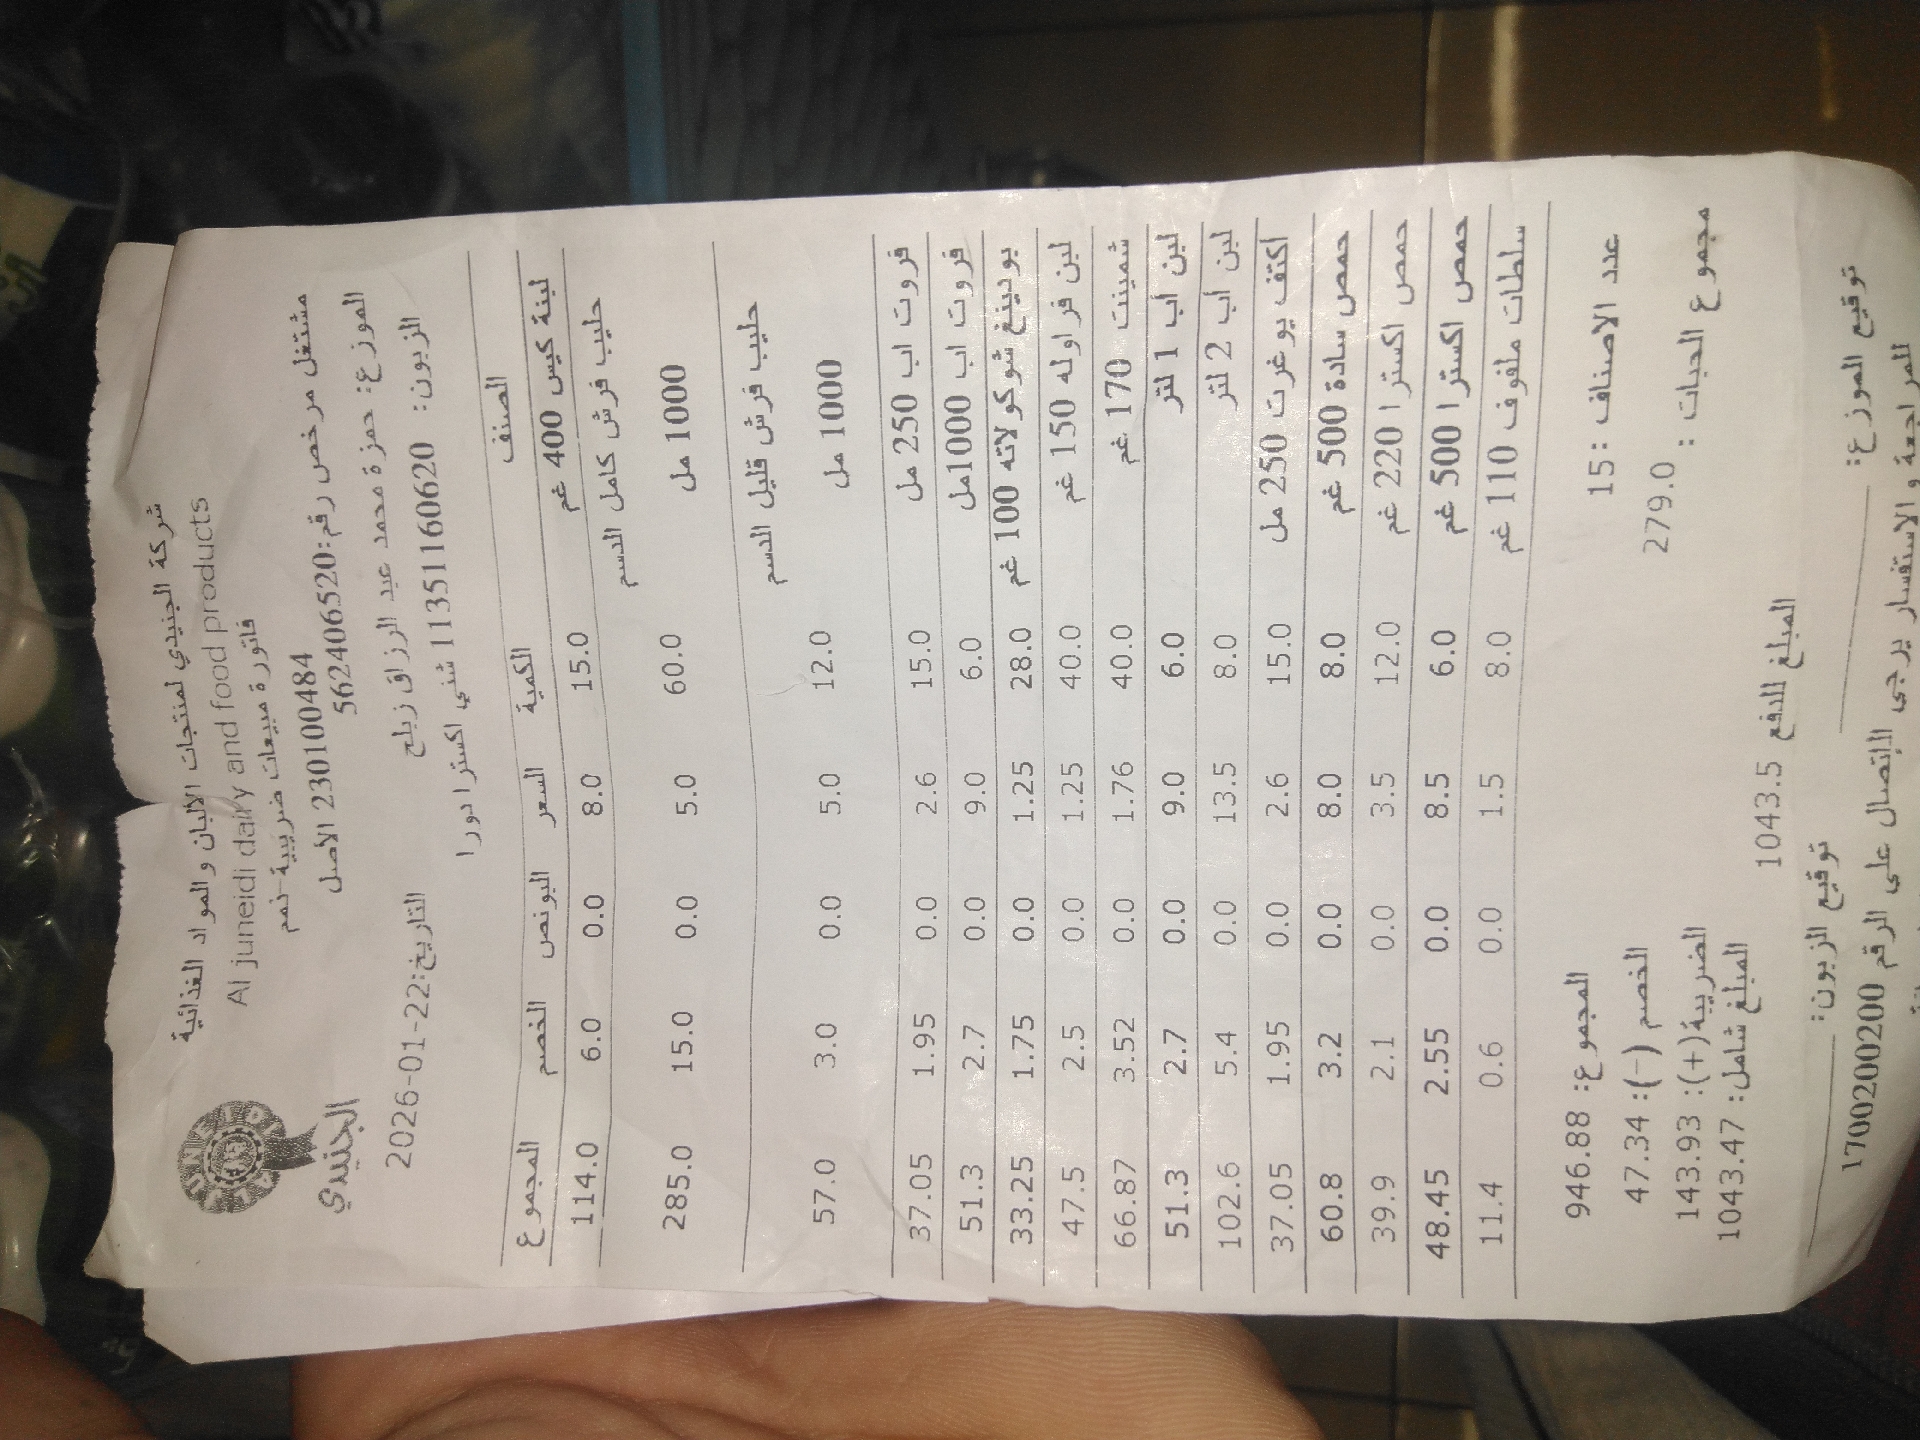 شركة الجنيدي لمنتجات الالبان و المواد الغذائية
Al juneidi dairy and food products
فاتورة مبيعات ضريبية-ذمم
230100484 الأصل
الجنيدي
مشتغل مرخص رقم:562406520
الموزع: حمزة محمد عبد الرزاق زبلح
التاريخ:2026-01-22
الزبون: 11351160620 شني اكسترا دورا
الصنف الكمية السعر البونص الخصم المجموع
لبنة كيس 400 غم 15.0 8.0 0.0 6.0 114.0
حليب فرش كامل الدسم
1000 مل 60.0 5.0 0.0 15.0 285.0
حليب فرش قليل الدسم
1000 مل 12.0 5.0 0.0 3.0 57.0
فروت اب 250 مل 15.0 2.6 0.0 1.95 37.05
فروت اب 1000مل 6.0 9.0 0.0 2.7 51.3
بودينغ شوكولاته 100 غم 28.0 1.25 0.0 1.75 33.25
لبن فراوله 150 غم 40.0 1.25 0.0 2.5 47.5
شمينت 170 غم 40.0 1.76 0.0 3.52 66.87
لبن أب 1 لتر 6.0 9.0 0.0 2.7 51.3
لبن أب 2 لتر 8.0 13.5 0.0 5.4 102.6
اكتف يوغرت 250 مل 15.0 2.6 0.0 1.95 37.05
حمص سادة 500 غم 8.0 8.0 0.0 3.2 60.8
حمص اكسترا 220 غم 12.0 3.5 0.0 2.1 39.9
حمص اكسترا 500 غم 6.0 8.5 0.0 2.55 48.45
سلطات ملفوف 110 غم 8.0 1.5 0.0 0.6 11.4
عدد الاصناف : 15
المجموع: 946.88
مجموع الحبات : 279.0
الخصم (-): 47.34
الضريبة(+): 143.93
المبلغ شامل: 1043.47
المبلغ للدفع 1043.5
توقيع الموزع:
توقيع الزبون:
للمراجعة والاستفسار يرجى الإتصال على الرقم 1700200200